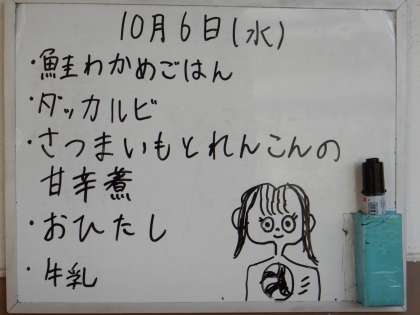 10月6日(水)
・鮭わかめごはん
・ダッカルビ
・さつまいもとれんこんの
甘辛煮
・おひたし
・牛乳